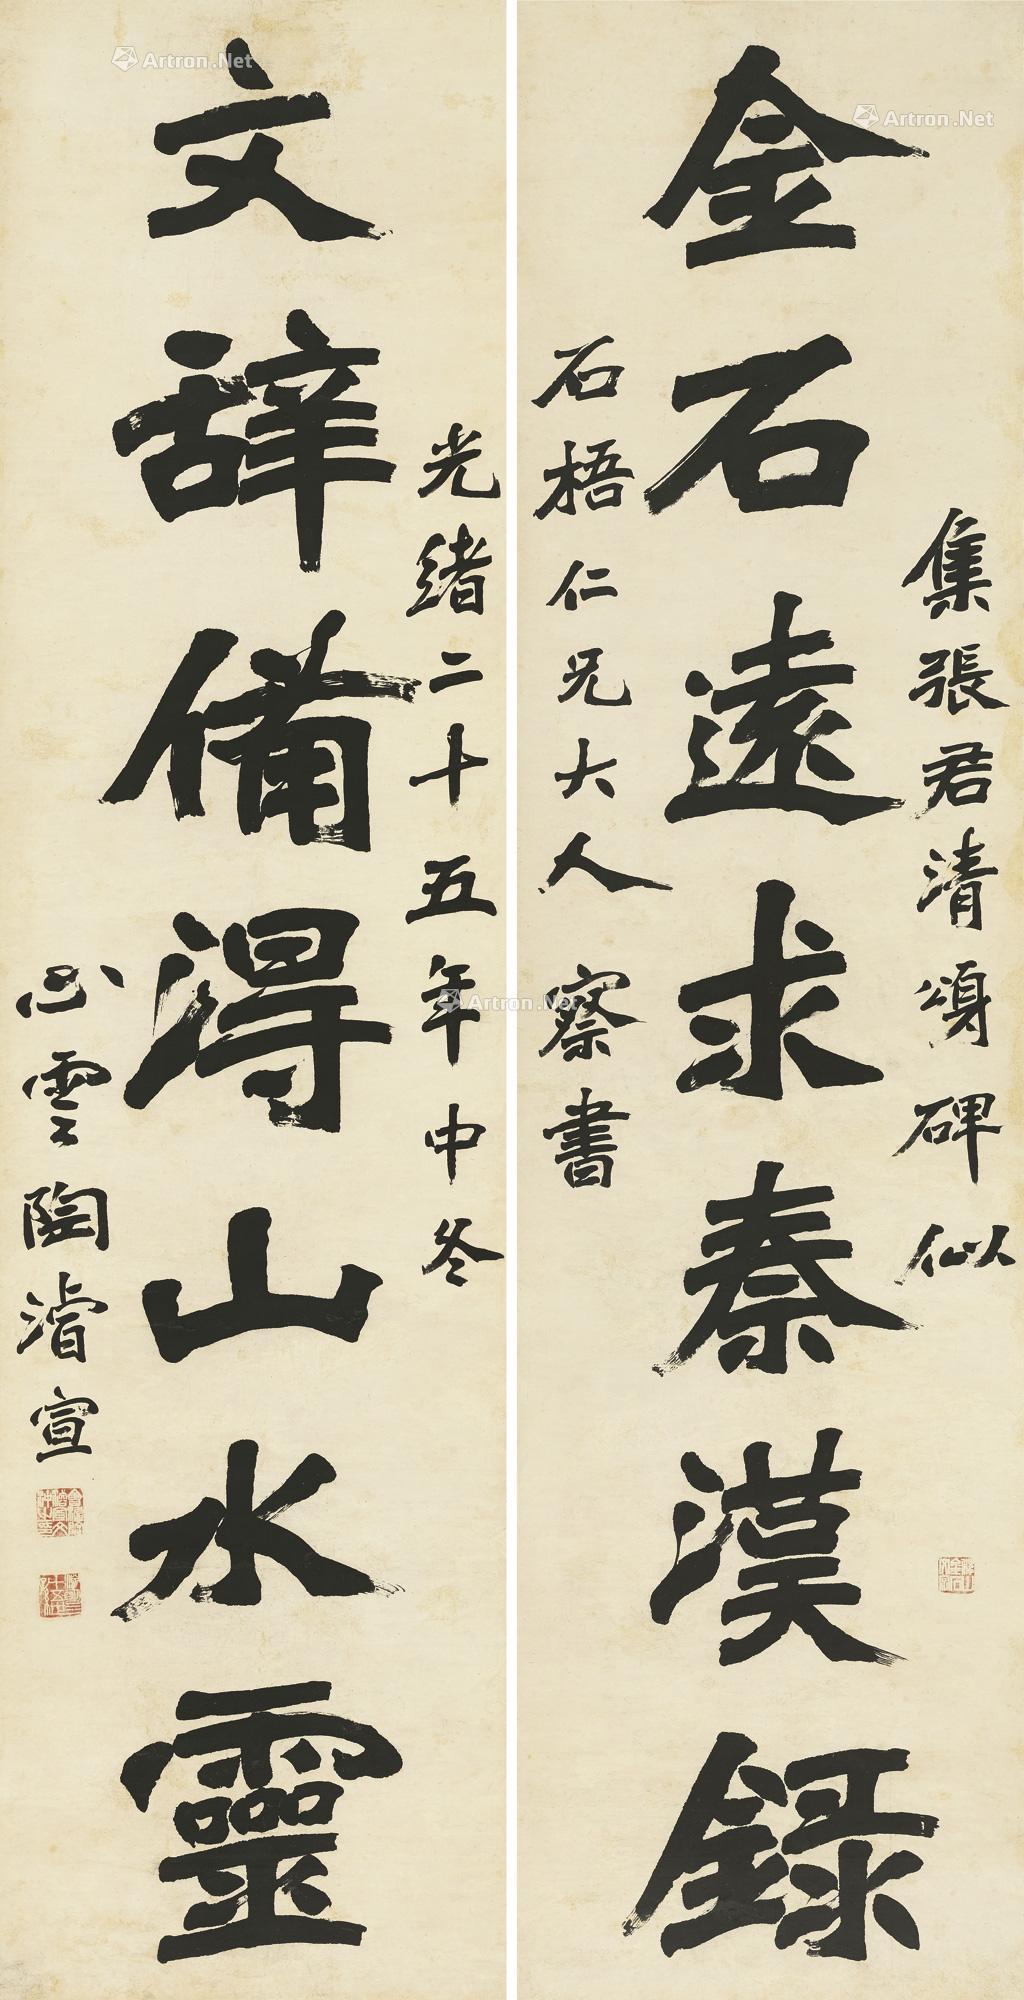 金石遠求秦漢録
集張君清頌碑似
石梧仁兄大人察書
文辤備淂山水靈
光緒二十五年中冬
心雲陶濬宣
Artron.Net
Artron.Net
Artron.Net